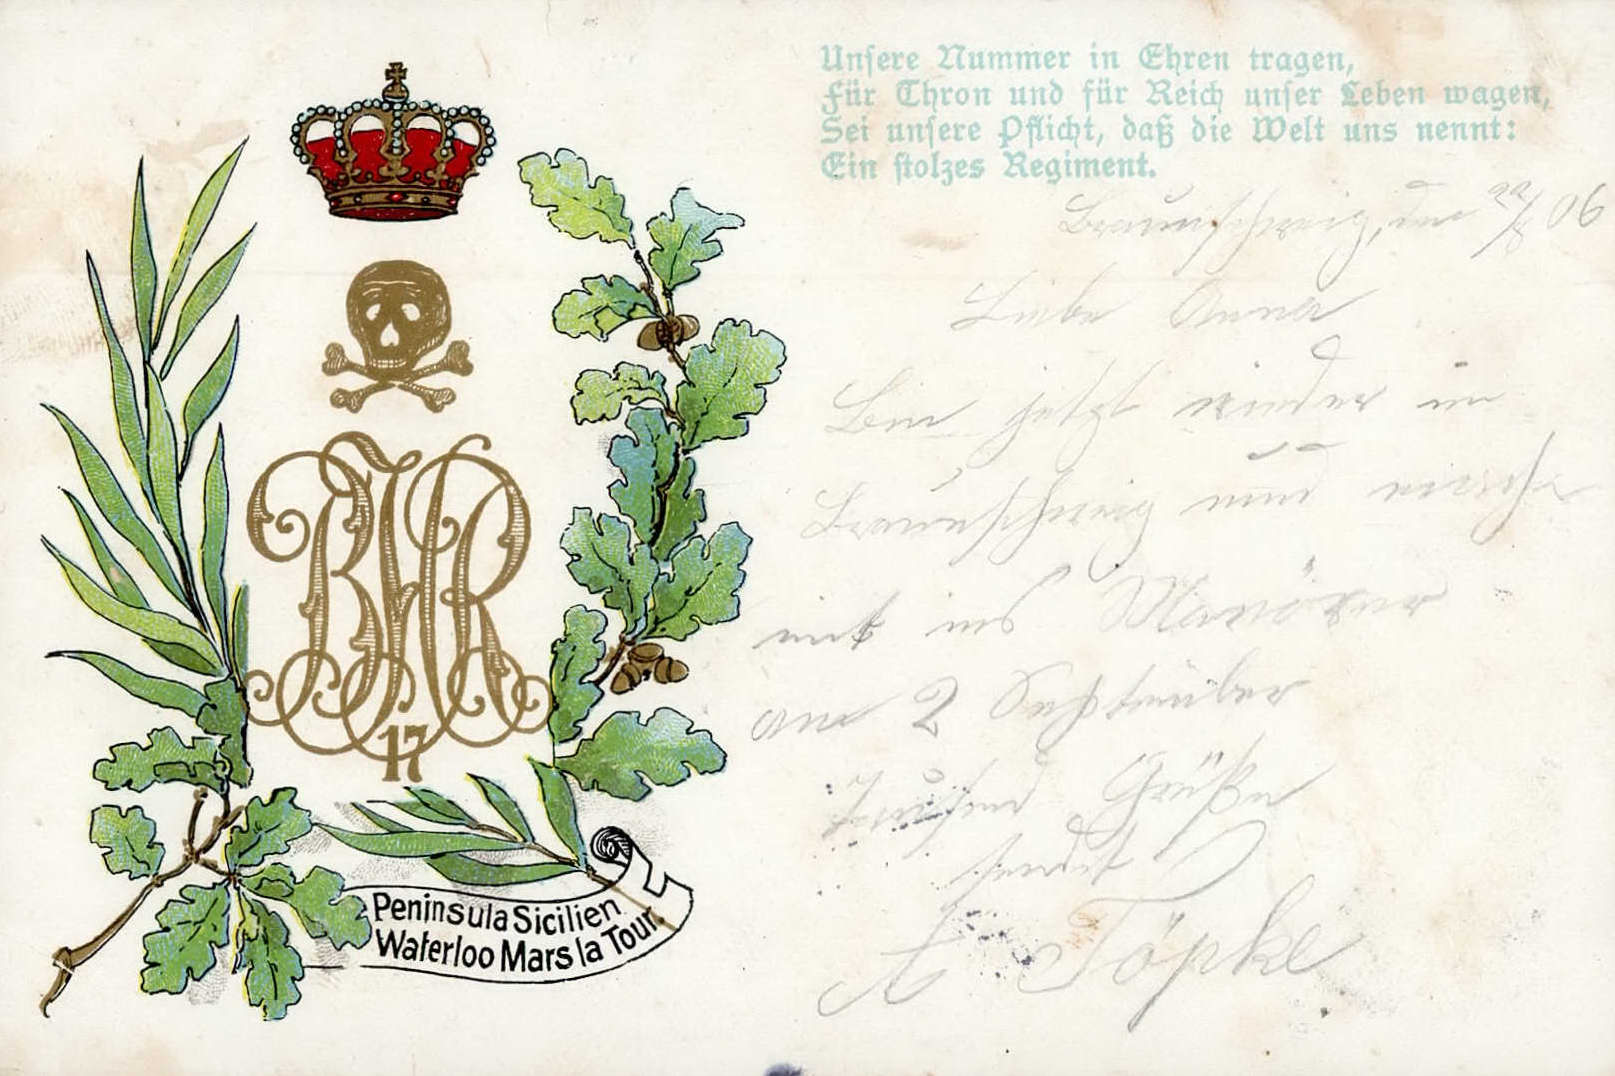 Unsere Nummer in Ehren tragen,
Für Thron und für Reich unser Leben wagen,
Sei unsere Pflicht, daß die Welt uns nennt:
Ein stolzes Regiment.
Braunschweig, den 22/8 06
Liebe Anna
Bin jetzt wieder in
Braunschweig und
mit ins Manöver
am 2 September
tausend Grüße
sendet
A Töpke
17
Peninsula Sicilien
Waterloo Mars la Tour.